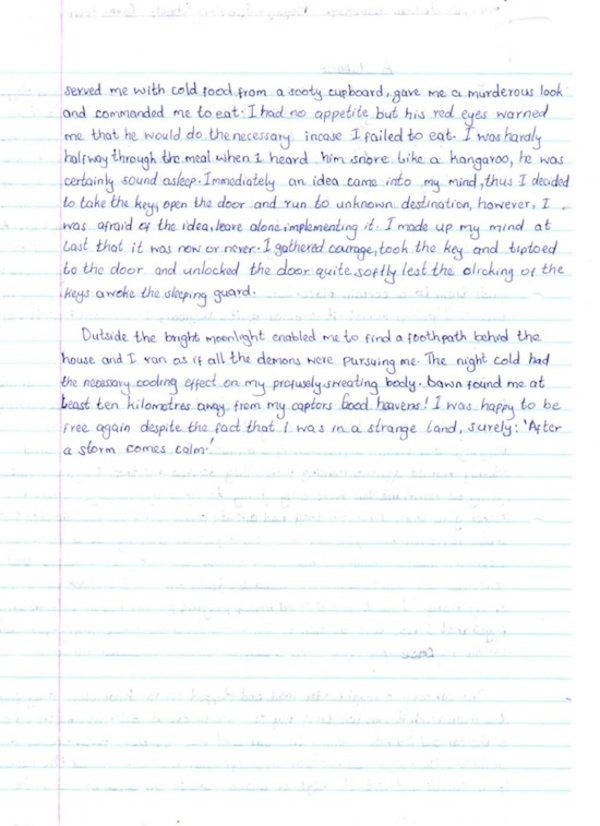 served me with cold food from a sooty cupboard, gave me a murderous look
and commanded me to eat. I had no appetite but his red eyes warned
me that he would do the necessary incase I failed to eat. I was hardly
halfway through the meal when I heard him snore like a kangaroo, he was
certainly sound asleep. Immediately an idea came into my mind, thus I decided
to take the key, open the door and run to unknown destination, however, I
was afraid of the idea, leave alone implementing it. I made up my mind at
last that it was now or never. I gathered courage, took the key and tiptoed
to the door and unlocked the door quite softly lest the clicking of the
keys awoke the sleeping guard.
Outside the bright moonlight enabled me to find a foothpath behind the
house and I ran as if all the demons were pursuing me. The night cold had
the necessary cooling effect on my profusely sweating body. Dawn found me at
least ten kilometres away from my captors Good heavens! I was happy to be
free again despite the fact that I was in a strange land, surely: 'After
a storm comes calm.'